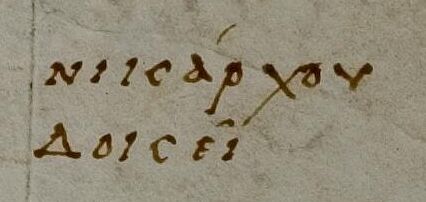 ΝΙΚΆΡΧΟΥ
ΔΟΚΕῖ